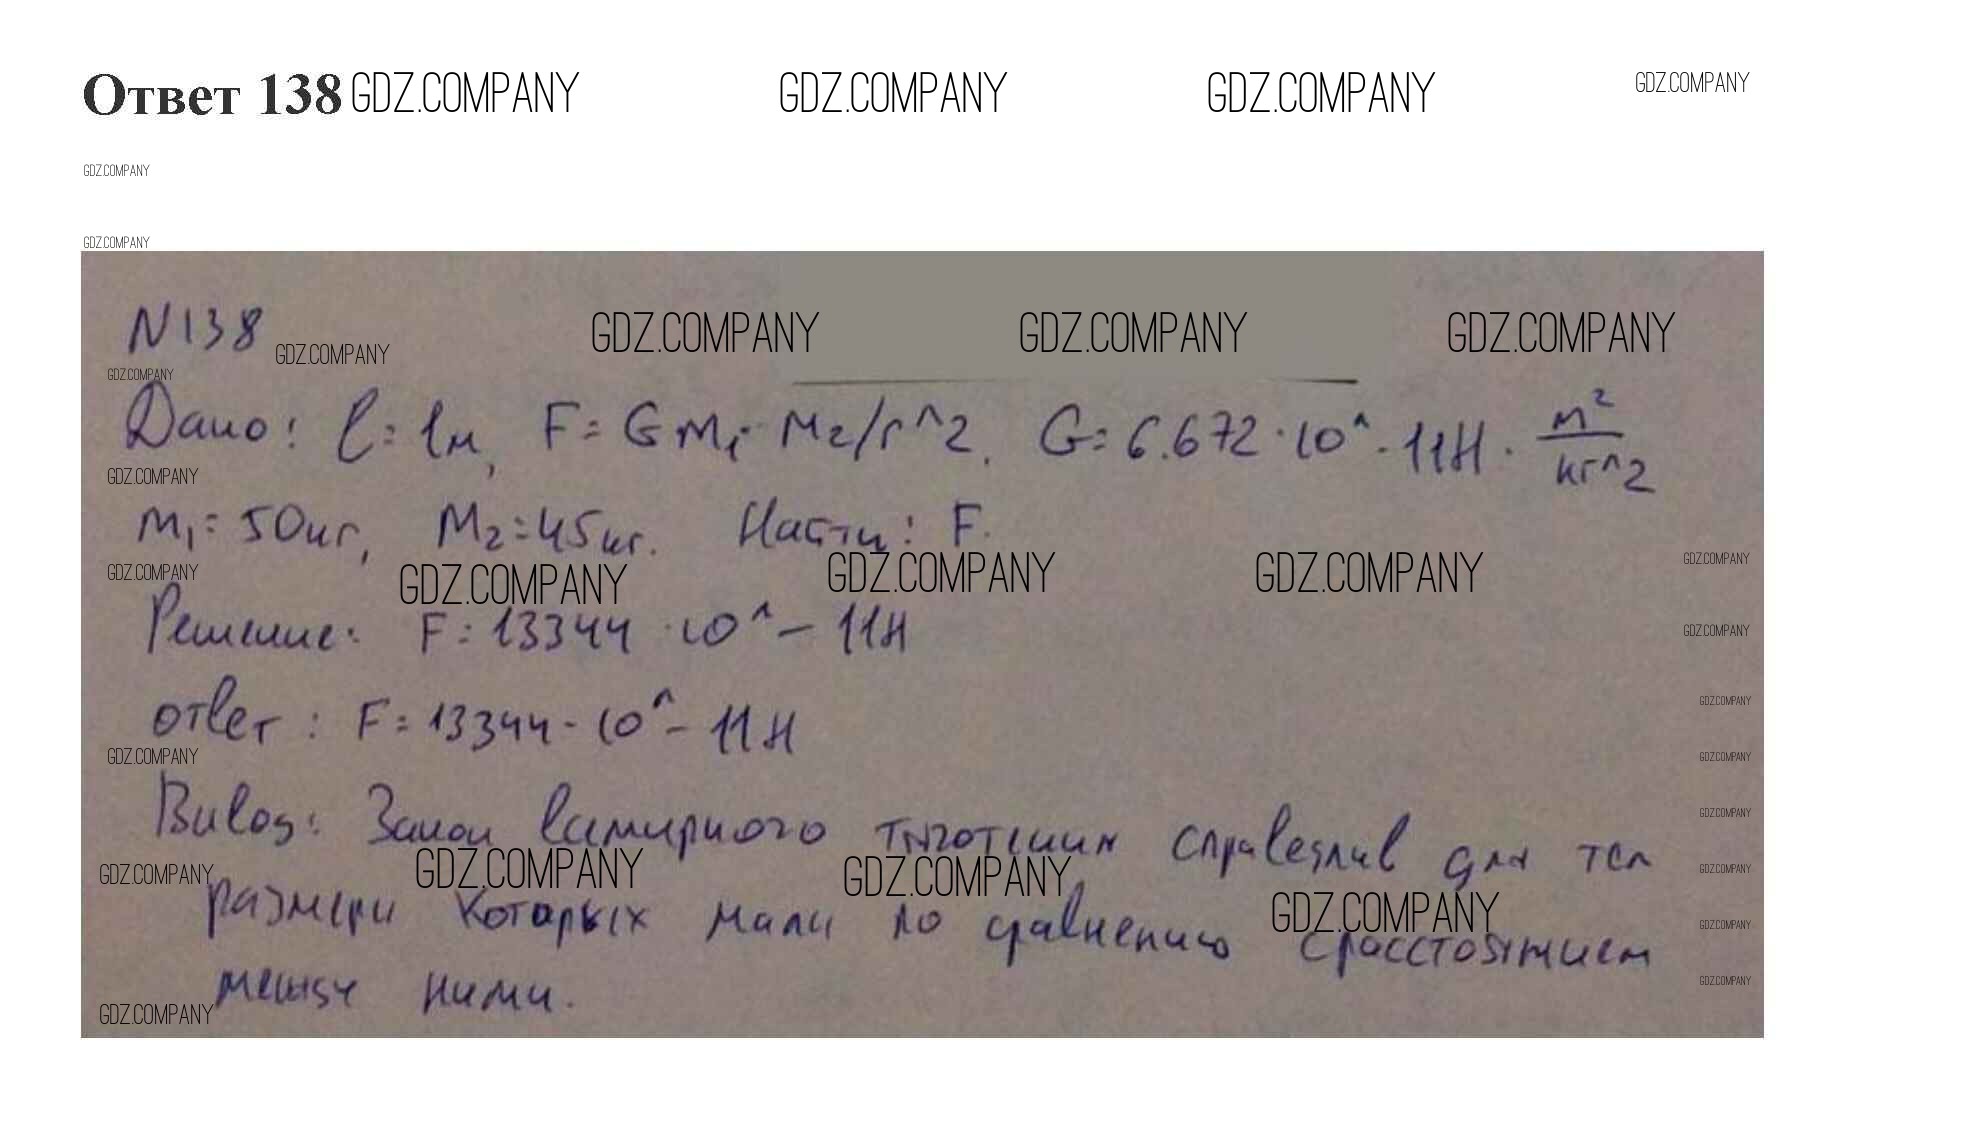 Ответ 138 GDZ.COMPANY GDZ.COMPANY GDZ.COMPANY GDZ.COMPANY
GDZ.COMPANY
GDZ.COMPANY
N138 GDZ.COMPANY GDZ.COMPANY GDZ.COMPANY GDZ.COMPANY
GDZ.COMPANY
Дано: l=1м, F=Gm₁·м₂/r^2. G=6.672·10^-11Н·м²/кг^2
GDZ.COMPANY
m₁=50кг, м₂=45кг. Насти: F.
GDZ.COMPANY GDZ.COMPANY GDZ.COMPANY GDZ.COMPANY GDZ.COMPANY
Решение: F=13344·10^-11Н GDZ.COMPANY
GDZ.COMPANY
ответ: F=13344·10^-11Н
GDZ.COMPANY GDZ.COMPANY
Вивод: Закон всемирного тяготения справедлив для тел
GDZ.COMPANY
GDZ.COMPANY GDZ.COMPANY GDZ.COMPANY GDZ.COMPANY GDZ.COMPANY
размери которых мали по сравнению с расстоянием
GDZ.COMPANY
между ними. GDZ.COMPANY
GDZ.COMPANY